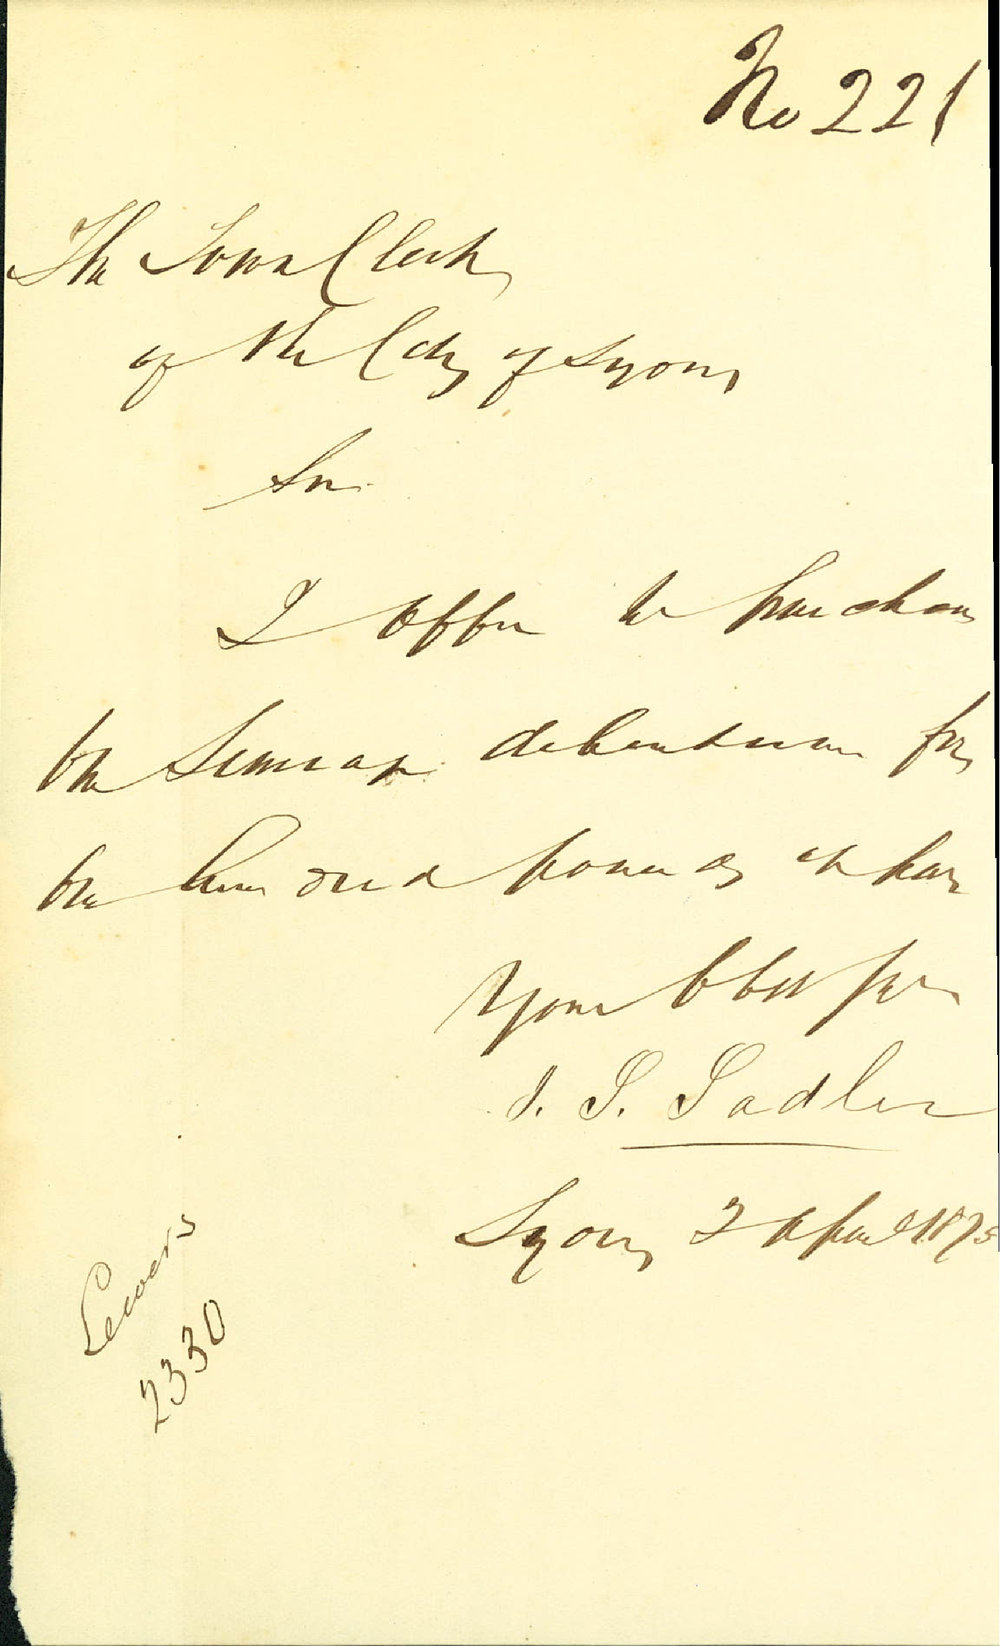 No 221
The Town Clerk
of the City of Lyons
Sir
I offer to purchase
the Sewerage debentures for
one hundred pounds at par
Your Obt
J. S. Sadler
Lyons 2 April 1875
Sewers
2330